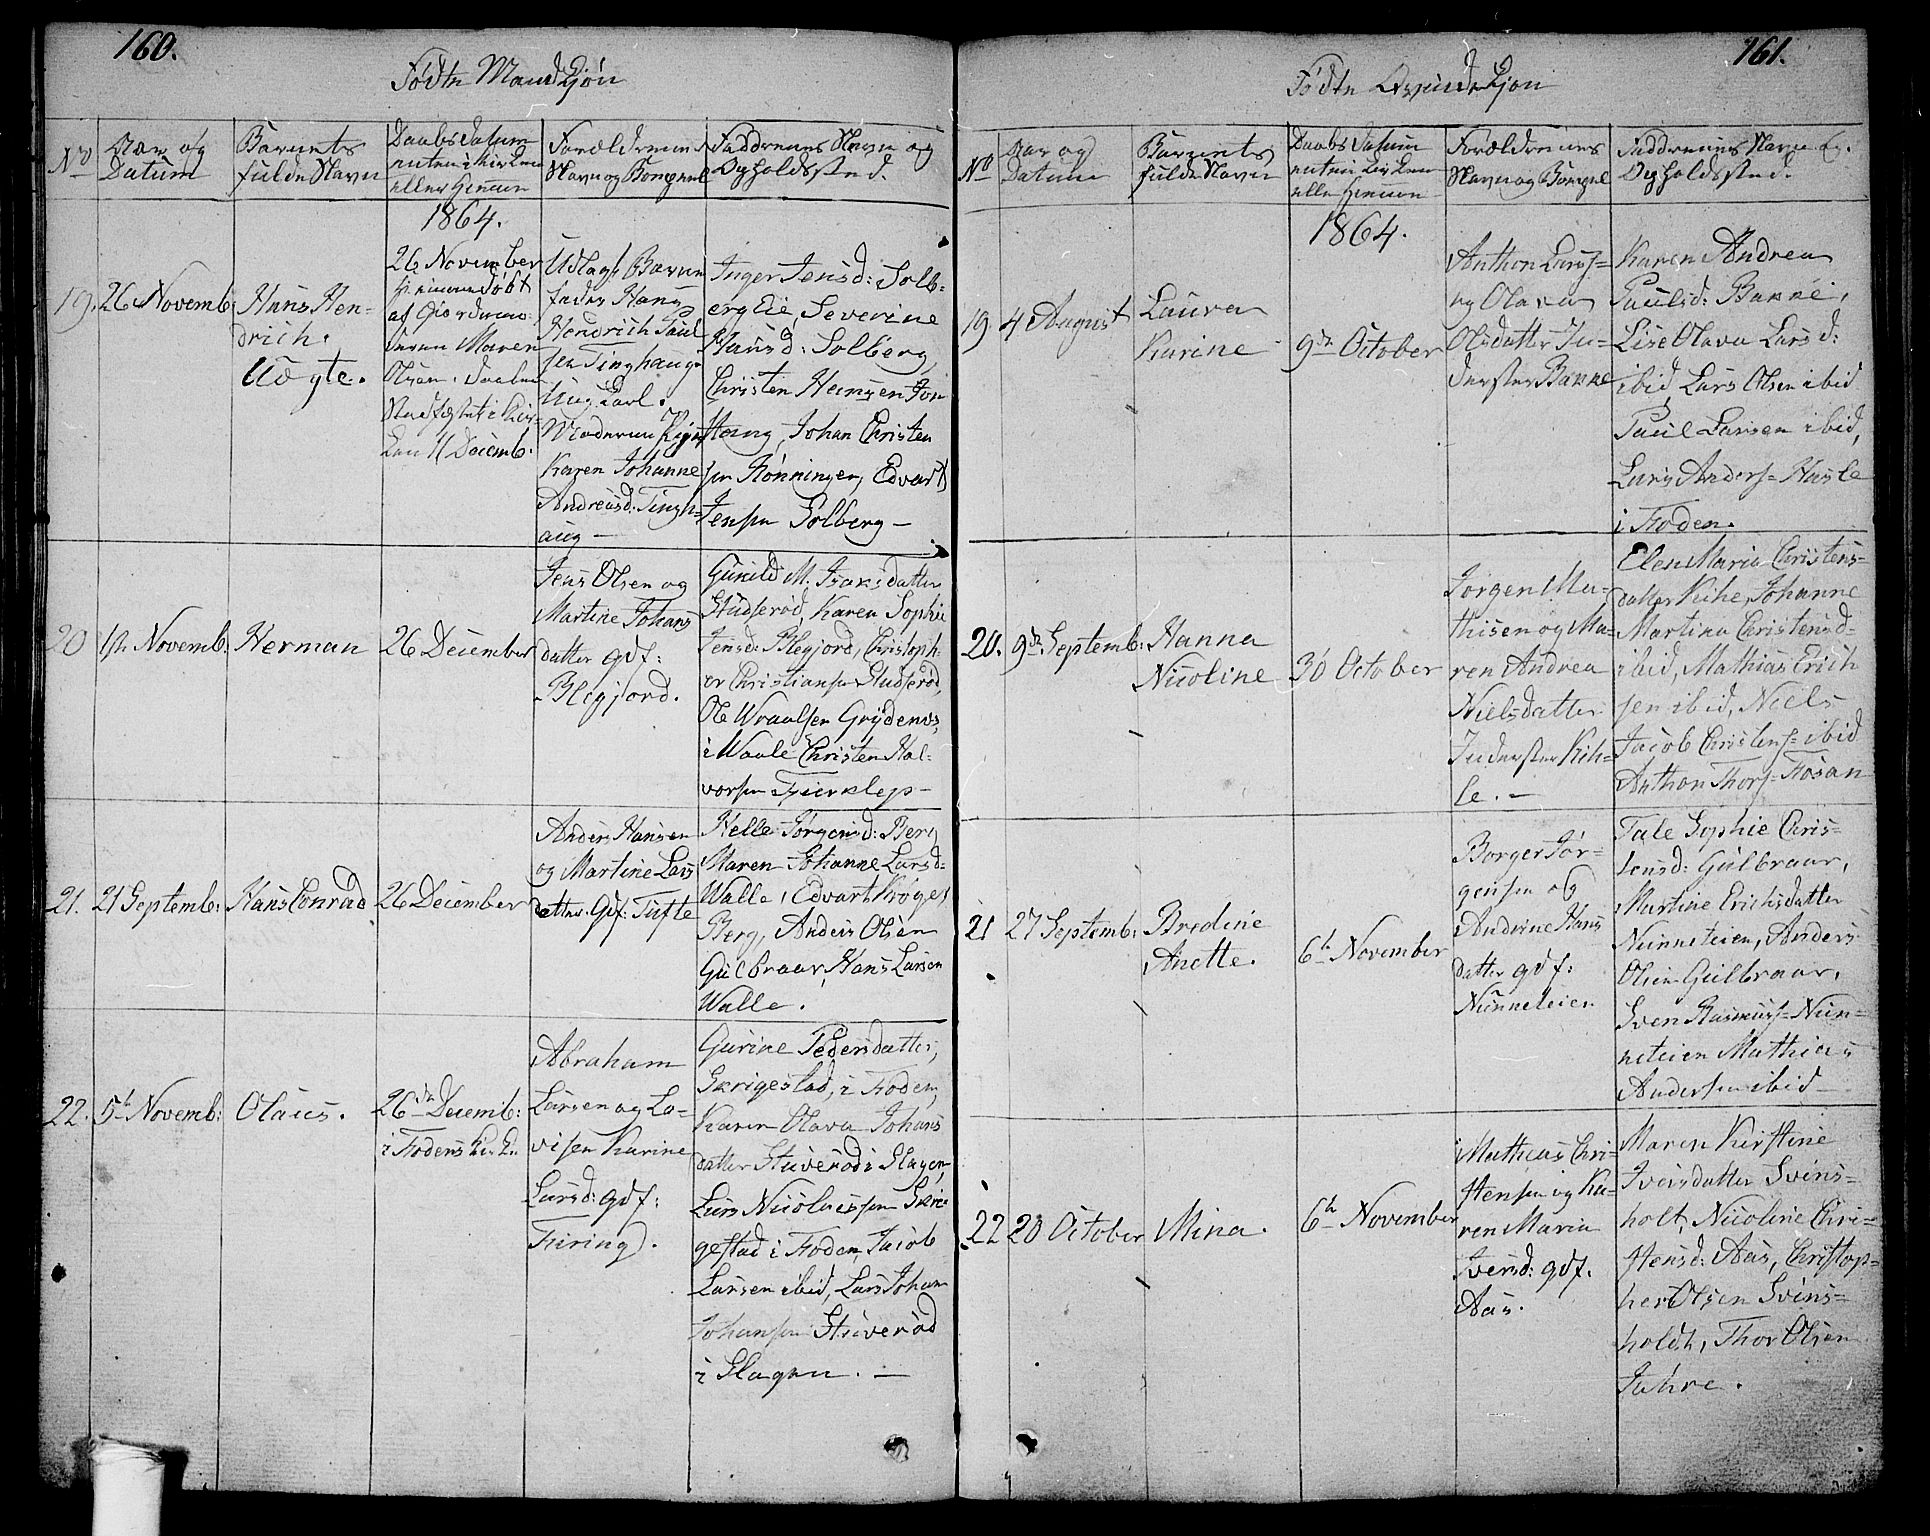 160.
Fødte Mandkjøn
No
Aar og
Datum
Barnets
fulde Navn
Daabs Datum
enten i Kirken
eller hjemme
Forældrenes
Navne og Bopæl
Faddrenes Navn og
Opholdssted.
1864.
19.
26 Novemb.
Hans Hen-
drich.
Uægte.
26 November
hjemmedøbt
af Giordemo-
deren Maren
Olsen. Daaben
Stadfæstet i Kir-
ken 11 Decemb.
Udlagt Barne
fader Hans
Hendrich Paul
sen Tinghaug
Ung Karl.
Moderen Pigen
Karen Johanne
Andreasd: Tingh-
aug —
Inger Jensd: Solb-
erg Eie, Severine
Hansd: Solberg,
Christen
Haug, Johan Christen
sen Rønningen, Edvart
Jensen Solberg —
20
1ste Novemb:
Herman
26 December
Jens Olsen og
Martine Johans
datter gdf:
Blegjord.
Gunild M. Isaksdatter
Studserød, Karen Sophie
Jensd: Blegjord, Christoph-
er Christiansen Studserød,
Ole Wraalsen
i Waale Christen Hal-
vorsen —
21.
21 Septemb:
Hans Conrad
26 December
Anders Hansen
og Martine Lars
datter. Gdf: Tufte
Helle Jørgensd: Berg
Maren Johanne Larsd=
Walle, Edvart
Berg, Anders Olsen
Gulbraar, Hans Larsen
Walle.
22.
5te Novemb:
Olaus.
26de Decemb:
i Fodens Kirke.
Abraham
Larsen og Lo-
visen Karine
Larsd: gdf:
Firing.
Gurine Pedersdatter,
Skrigestad, i Foden,
Karen Olava Johans
datter Stuverød i Slagen,
Lars Nicolaissen Skri-
gestad i Foden, Jacob
Larsen ibid, Lars Johan
Johansen Stuverød
i Slagen. —
161.
Fødte Qvindekjøn
No
Aar og
Datum
Barnets
fulde Navn
Daabs Datum
enten i Kirken
eller hjemme
Forældrenes
Navne og Bopæl
Faddrenes Navne og.
Opholdssted.
1864.
19.
4 August
Laura
Karine
9de October
Anthon Lars=
og Olava
Olsdatter In-
derster Bakke
Karen Andrea
Paulsd: Bakke,
Lise Olava Larsd:
ibid, Lars Olsen ibid
Paul Larsen ibid,
Lars Anders= Hasle
i Foden.
20.
9de Septemb:
Hanna
Nicoline
30 October
Jørgen Ma-
thisen og Ma-
ren Andrea
Nielsdatter
Inderster Kih-
le. —
Elen Maria Christens-
datter Kihle, Johanne
Martina Christensd-
ibid, Mathias Erich
sen ibid, Niels
Jacob Christens= ibid
Anthon Thors= Fossan
21
27 Septemb:
Bredine
Anette.
6te November
Borger Jør-
gensen og
Andrine Hans
datter gdf:
Nunneteien
Tale Sophie Chris-
tensd: Gulbraar,
Martine Erichsdatter
Nunneteien, Anders
Olsen Gulbraar,
Sven Rasmus= Nun-
neteien Mathias
Andersen ibid —
22
20 October
Mina.
6te November
Mathias Chri-
stensen og Ka-
ren Maria
Iversd: gdf.
Aas.
Maren Kirstine
Iversdatter Svins-
holt, Nicoline Chri-
stensd: Aas, Christop-
her Olsen Svins-
holdt, Thor Olsen
Jahre.